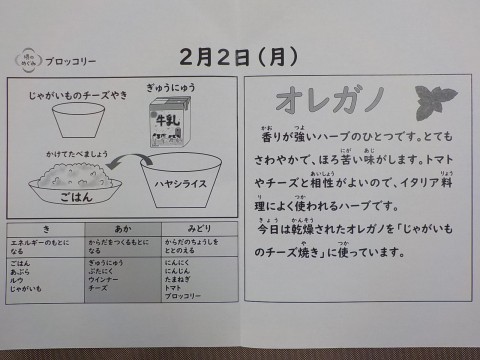 旬の
めぐみ
ブロッコリー
2月2日(月)
じゃがいものチーズやき
ぎゅうにゅう
牛乳
かけてたべましょう
ごはん
ハヤシライス
き
あか
みどり
エネルギーのもとに
なる
からだをつくるもとに
なる
からだのちょうしを
ととのえる
ごはん
あぶら
ルウ
じゃがいも
ぎゅうにゅう
ぶたにく
ウインナー
チーズ
にんにく
にんじん
たまねぎ
トマト
ブロッコリー
オレガノ
かお つよ
香りが強いハーブのひとつです。とても
にが あじ
さわやかで、ほろ苦い味がします。トマト
あいしょう りょう
やチーズと相性がよいので、イタリア料
り つか
理によく使われるハーブです。
きょう かんそう
今日は乾燥されたオレガノを「じゃがいも
や つか
のチーズ焼き」に使っています。